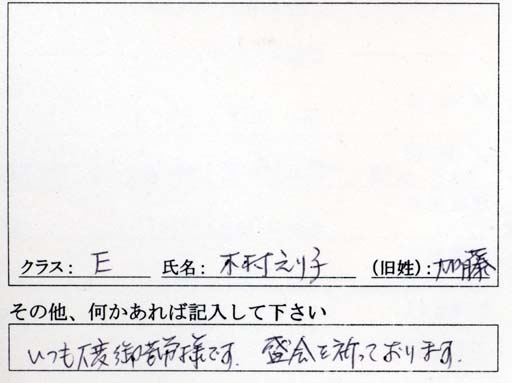 クラス: E 氏名: 木村えり子 (旧姓): 加藤
その他、何かあれば記入して下さい
いつも 御苦労様です. 盛会を祈っております.